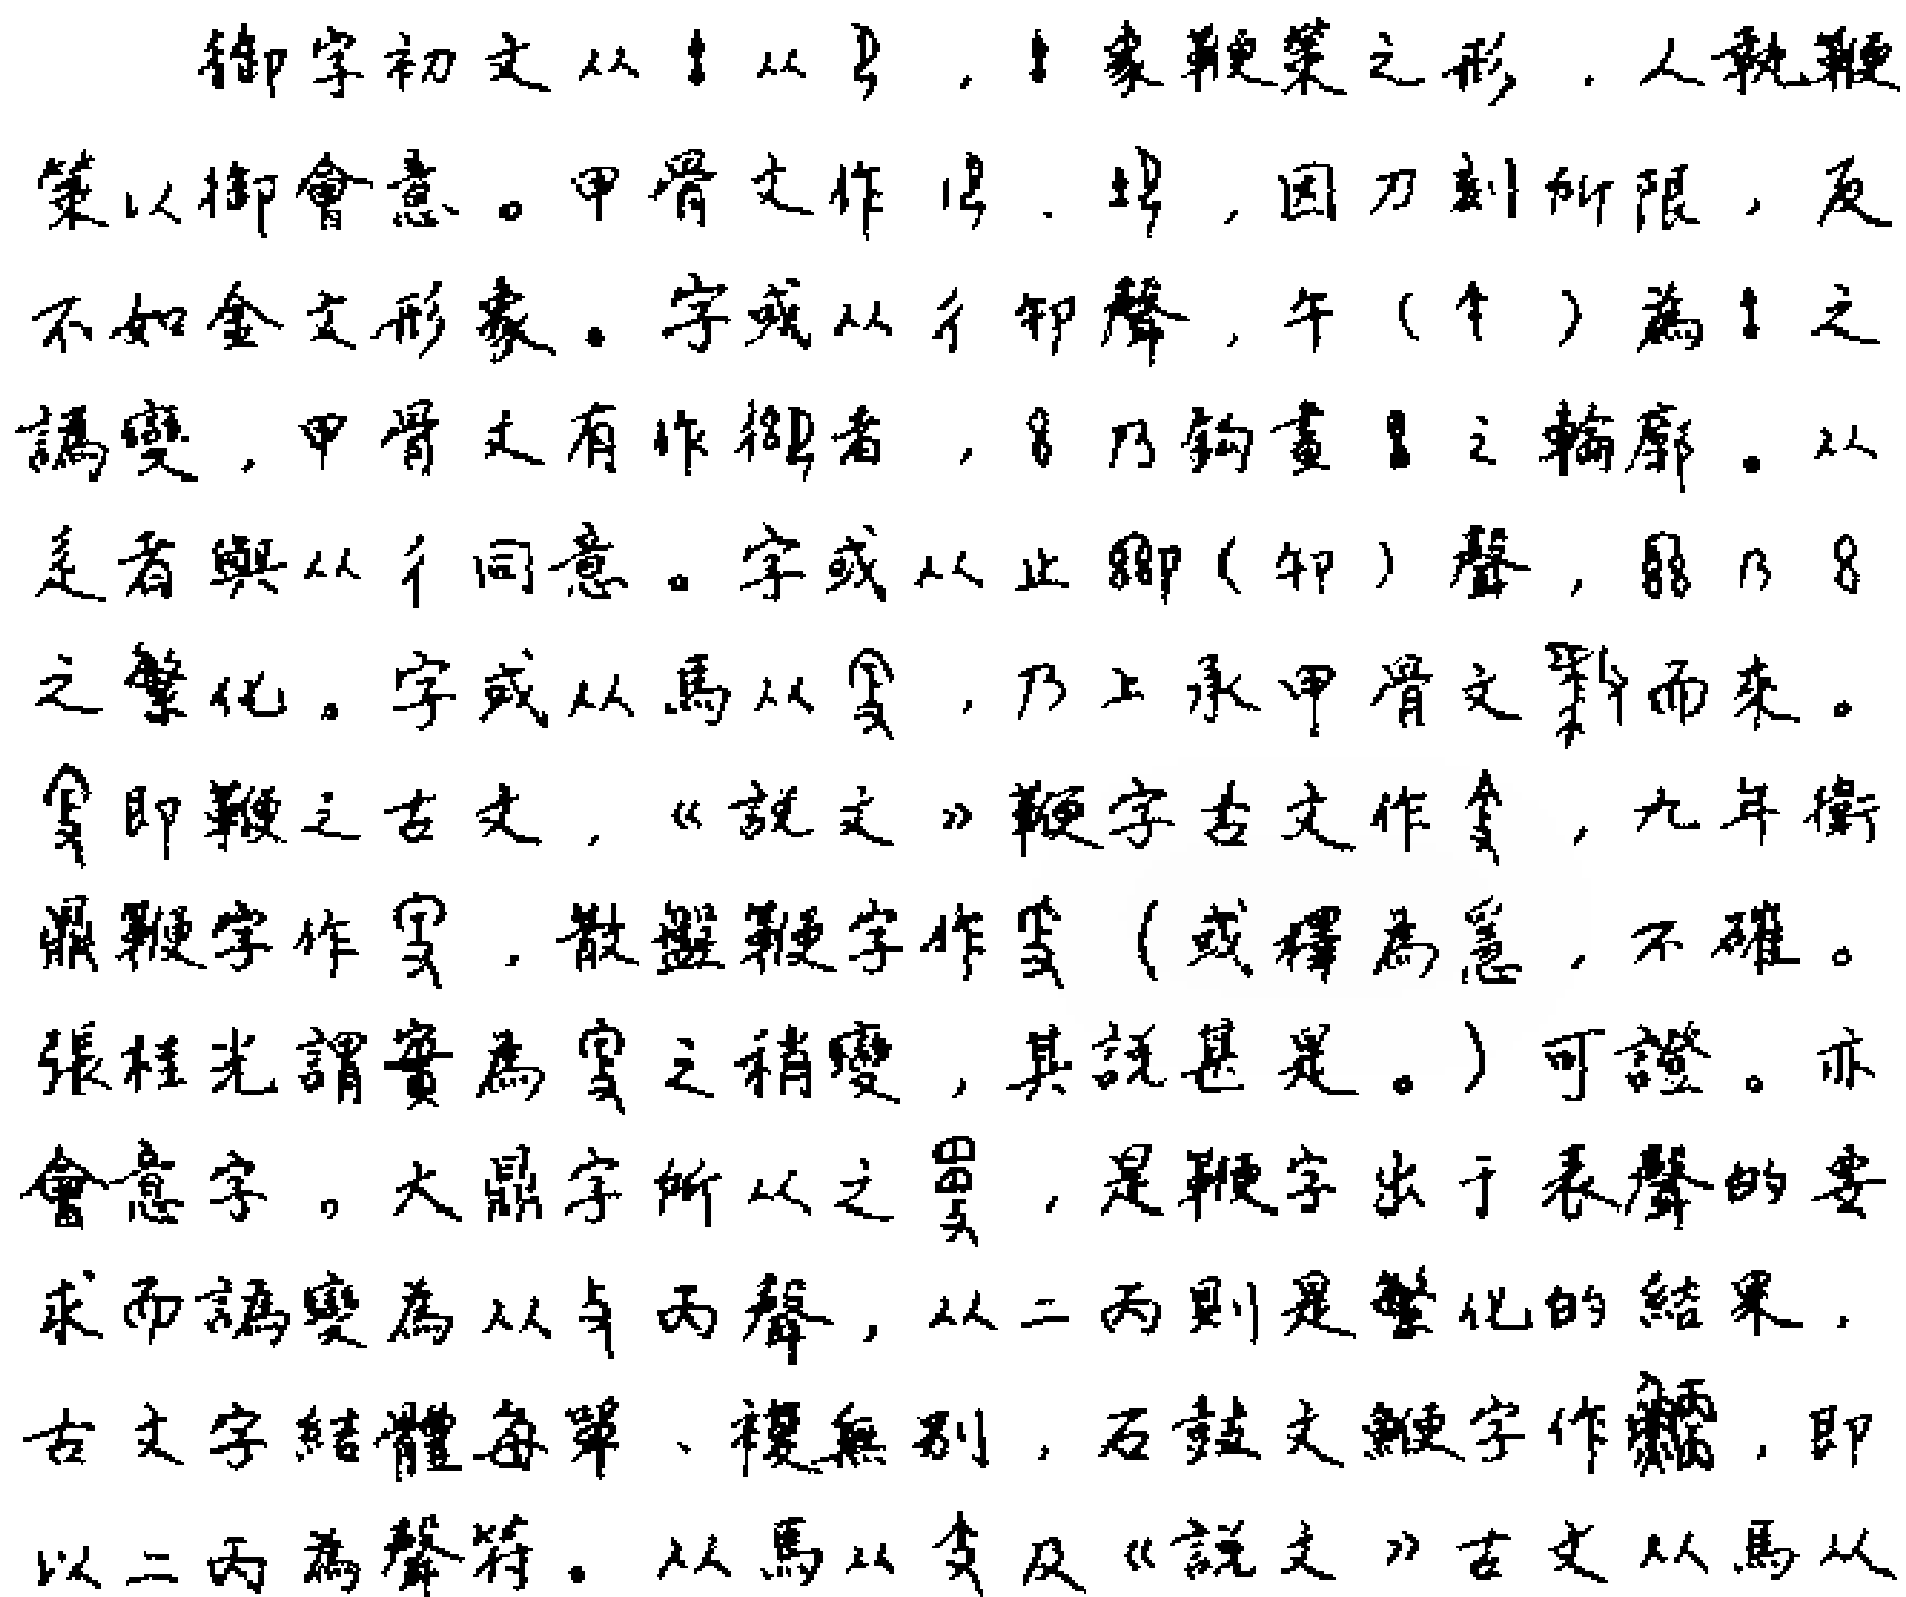 御字初文从从，象鞭策之形，人執鞭
策以御會意。甲骨文作、，因刀刻所限，反
不如金文形象。字或从彳卸聲，午（）為之
譌變，甲骨文有作者，乃鈎畫之輪廓。从
辵者與从彳同意。字或从止（卸）聲，乃
之繁化。字或从馬从，乃上承甲骨文而來。
即鞭之古文，《説文》鞭字古文作，九年衛
鼎鞭字作，散盤鞭字作（或釋為，不確。
張桂光謂實為之稍變，其説甚是。）可證。亦
會意字。大鼎字所从之，是鞭字出于表聲的要
求而譌變為从攴丙聲，从二丙則是繁化的結果，
古文字結體每單、複無別，石鼓文鯁字作，即
以二丙為聲符。从馬从及《説文》古文从馬从